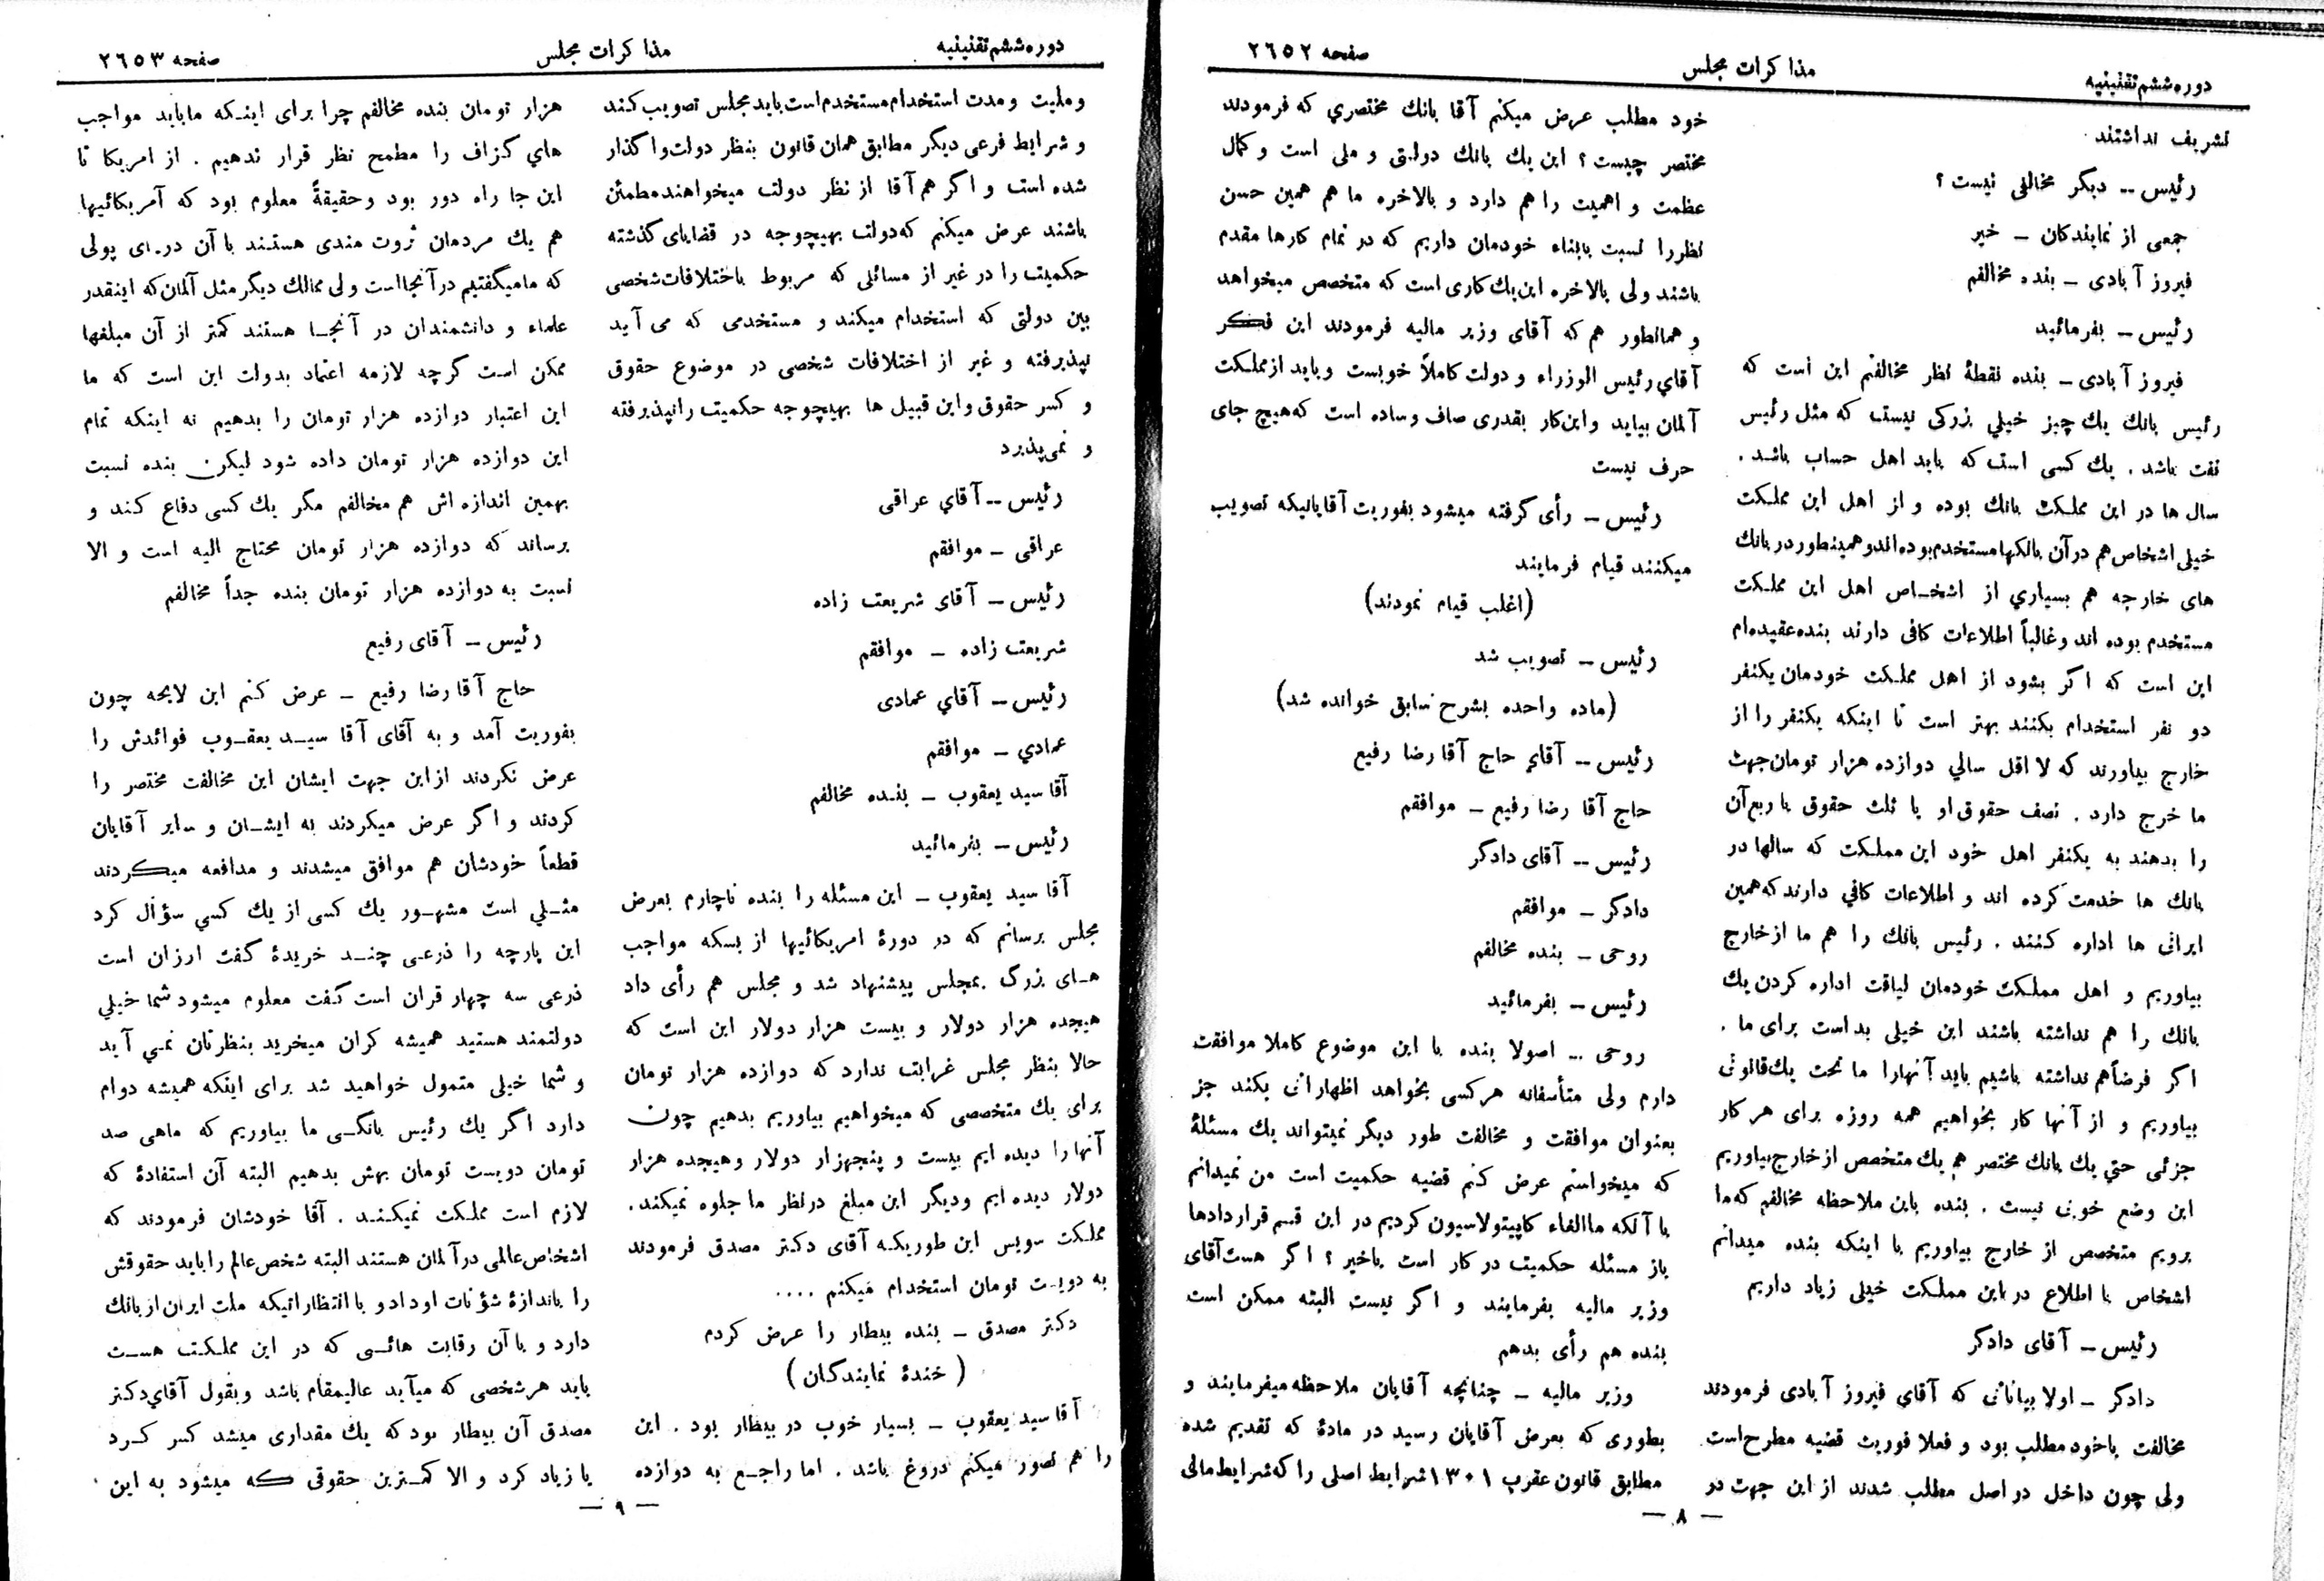 دوره ششم تقنینیه
مذاکرات مجلس
صفحه ۲۶۵۲
تشریف نداشتند
رئیس -- دیگر مخالفی نیست ؟
جمعی از نمایندگان - خیر
فیروز آبادی - بنده مخالفم
رئیس - بفرمائید
فیروز آبادی - بنده نقطهٔ نظر مخالفتم این است که
رئیس بانك یك چیز خیلي بزرکی نیست که مثل رئیس
نفت باشد . یك کسی است که باید اهل حساب باشد .
سال ها در این مملکت بانك بوده و از اهل این مملکت
خیلی اشخاص هم در آن بانکها مستخدم بوده اند و همینطور در بانك
های خارجه هم بسیاري از اشخاص اهل این مملکت
مستخدم بوده اند و غالباً اطلاعات کافی دارند بنده عقیده ام
این است که اگر بشود از اهل مملکت خودمان یکنفر
دو نفر استخدام بکنند بهتر است تا اینکه یکنفر را از
خارج بیاورند که لا اقل سالي دوازده هزار تومان جهت
ما خرج دارد . نصف حقوق او یا ثلث حقوق یا ربع آن
را بدهند به یکنفر اهل خود این مملکت که سالها در
بانك ها خدمت کرده اند و اطلاعات کافي دارند که همین
ایرانی ها اداره کنند . رئیس بانك را هم ما از خارج
بیاوریم و اهل مملکت خودمان لیاقت اداره کردن یك
بانك را هم نداشته باشند این خیلی بد است برای ما .
اگر فرضاً هم نداشته باشیم باید آنهارا ما تحت یك قانونی
بیاوریم و از آنها کار بخواهیم همه روزه برای هر کار
جزئی حتي یك بانك مختصر هم یك متخصص از خارج بیاوریم
این وضع خوبی نیست . بنده باین ملاحظه مخالفم که ما
برویم متخصص از خارج بیاوریم با اینکه بنده میدانم
اشخاص با اطلاع در این مملکت خیلی زیاد داریم
رئیس - آقای دادگر
دادگر - اولا بیاناتی که آقاي فیروز آبادی فرمودند
مخالفت با خود مطلب بود و فعلا فوریت قضیه مطرح است
ولی چون داخل در اصل مطلب شدند از این جهت در
خود مطلب عرض میکنم آقا بانك مختصري که فرمودند
مختصر چیست ؟ این یك بانك دولتی و ملی است و کمال
عظمت و اهمیت را هم دارد و بالاخره ما هم همین حسن
نظر را نسبت بابناء خودمان داریم که در تمام کارها مقدم
باشند ولی بالاخره این یك کاری است که متخصص میخواهد
و همانطور هم که آقای وزیر مالیه فرمودند این فکر
آقاي رئیس الوزراء و دولت کاملاً خوبست و باید از مملکت
آلمان بیاید و این کار بقدری صاف و ساده است که هیچ جای
حرف نیست
رئیس - رأی گرفته میشود بفوریت آقایانیکه تصویب
میکنند قیام فرمایند
(اغلب قیام نمودند)
رئیس - تصویب شد
(ماده واحده بشرح سابق خوانده شد)
رئیس -- آقاي حاج آقا رضا رفیع
حاج آقا رضا رفیع - موافقم
رئیس -- آقای دادگر
دادگر - موافقم
روحی - بنده مخالفم
رئیس - بفرمائید
روحی - اصولا بنده با این موضوع کاملا موافقت
دارم ولی متأسفانه هرکسی بخواهد اظهاراتی بکند جز
بعنوان موافقت و مخالفت طور دیگر نمیتواند یك مسئلهٔ
که میخواستم عرض کنم قضیه حکمیت است من نمیدانم
با آنکه ما الغاء کاپیتولاسیون کردیم در این قسم قراردادها
باز مسئله حکمیت در کار است یا خیر ؟ اگر هست آقای
وزیر مالیه بفرمایند و اگر نیست البته ممکن است
بنده هم رأی بدهم
وزیر مالیه - چنانچه آقایان ملاحظه میفرمایند و
بطوری که بعرض آقایان رسید در مادهٔ که تقدیم شده
مطابق قانون عقرب ۱۳۰۱ شرایط اصلی را که شرایط مالی
— ۸ —
دوره ششم تقنینیه
مذاکرات مجلس
صفحه ۲۶۵۳
و ملیت و مدت استخدام مستخدم است باید مجلس تصویب کند
و شرایط فرعی دیگر مطابق همان قانون بنظر دولت واگذار
شده است و اگر هم آقا از نظر دولت میخواهند مطمئن
باشند عرض میکنم که دولت بهیچوجه در قضایای گذشته
حکمیت را در غیر از مسائلی که مربوط باختلافات شخصی
بین دولتی که استخدام میکند و مستخدمی که می آید
نپذیرفته و غیر از اختلافات شخصی در موضوع حقوق
و کسر حقوق و این قبیل ها بهیچوجه حکمیت را نپذیرفته
و نمی پذیرد
رئیس -- آقاي عراقی
عراقی - موافقم
رئیس - آقای شریعت زاده
شریعت زاده - موافقم
رئیس -- آقاي عمادی
عمادي - موافقم
آقا سید یعقوب - بنده مخالفم
رئیس - بفرمائید
آقا سید یعقوب - این مسئله را بنده ناچارم بعرض
مجلس برسانم که در دورهٔ امریکائیها از بسکه مواجب
های بزرگ بمجلس پیشنهاد شد و مجلس هم رأی داد
هیجده هزار دولار و بیست هزار دولار این است که
حالا بنظر مجلس غرابت ندارد که دوازده هزار تومان
برای یك متخصصی که میخواهیم بیاوریم بدهیم چون
آنها را دیده ایم بیست و پنجهزار دولار و هیجده هزار
دولار دیده ایم و دیگر این مبلغ در نظر ما جلوه نمیکند .
مملکت سویس این طوریکه آقای دکتر مصدق فرمودند
به دویست تومان استخدام میکنم ....
دکتر مصدق - بنده بیطار را عرض کردم
( خندهٔ نمایندگان )
آقا سید یعقوب - بسیار خوب در بیطار بود . این
را هم تصور میکنم دروغ باشد . اما راجع به دوازده
هزار تومان بنده مخالفم چرا برای اینکه ما باید مواجب
هاي گزاف را مطمح نظر قرار ندهیم . از امریکا تا
این جا راه دور بود و حقیقةً معلوم بود که آمریکائیها
هم یك مردمان ثروت مندی هستند با آن دریای پولی
که ما میگفتیم در آنجا است ولی ممالك دیگر مثل آلمان که اینقدر
علماء و دانشمندان در آنجا هستند کمتر از آن مبلغها
ممکن است گرچه لازمه اعتماد بدولت این است که ما
این اعتبار دوازده هزار تومان را بدهیم نه اینکه تمام
این دوازده هزار تومان داده شود لیکن بنده نسبت
بهمین اندازه اش هم مخالفم مگر یك کسی دفاع کند و
برساند که دوازده هزار تومان محتاج الیه است و الا
نسبت به دوازده هزار تومان بنده جداً مخالفم
رئیس - آقای رفیع
حاج آقا رضا رفیع - عرض کنم این لایحه چون
بفوریت آمد و به آقای آقا سید یعقوب فوائدش را
عرض نکردند از این جهت ایشان این مخالفت مختصر را
کردند و اگر عرض میکردند به ایشان و سایر آقایان
قطعاً خودشان هم موافق میشدند و مدافعه میکردند
مثلي است مشهور یك کسی از یك کسي سؤال کرد
این پارچه را ذرعی چند خریدهٔ گفت ارزان است
ذرعی سه چهار قران است گفت معلوم میشود شما خیلي
دولتمند هستید همیشه گران میخرید بنظرتان نمي آید
و شما خیلی متمول خواهید شد برای اینکه همیشه دوام
دارد اگر یك رئیس بانگی ما بیاوریم که ماهی صد
تومان دویست تومان بهش بدهیم البته آن استفادهٔ که
لازم است مملکت نمیکند . آقا خودشان فرمودند که
اشخاص عالمی در آلمان هستند البته شخص عالم را باید حقوقش
را باندازهٔ شؤنات او داد و با انتظاراتیکه ملت ایران از بانك
دارد و با آن رقابت هائی که در این مملکت هست
باید هر شخصی که میآید عالیمقام باشد و بقول آقاي دکتر
مصدق آن بیطار بود که یك مقداری میشد کسر کرد
یا زیاد کرد و الا کمترین حقوقی که میشود به این
— ۹ —